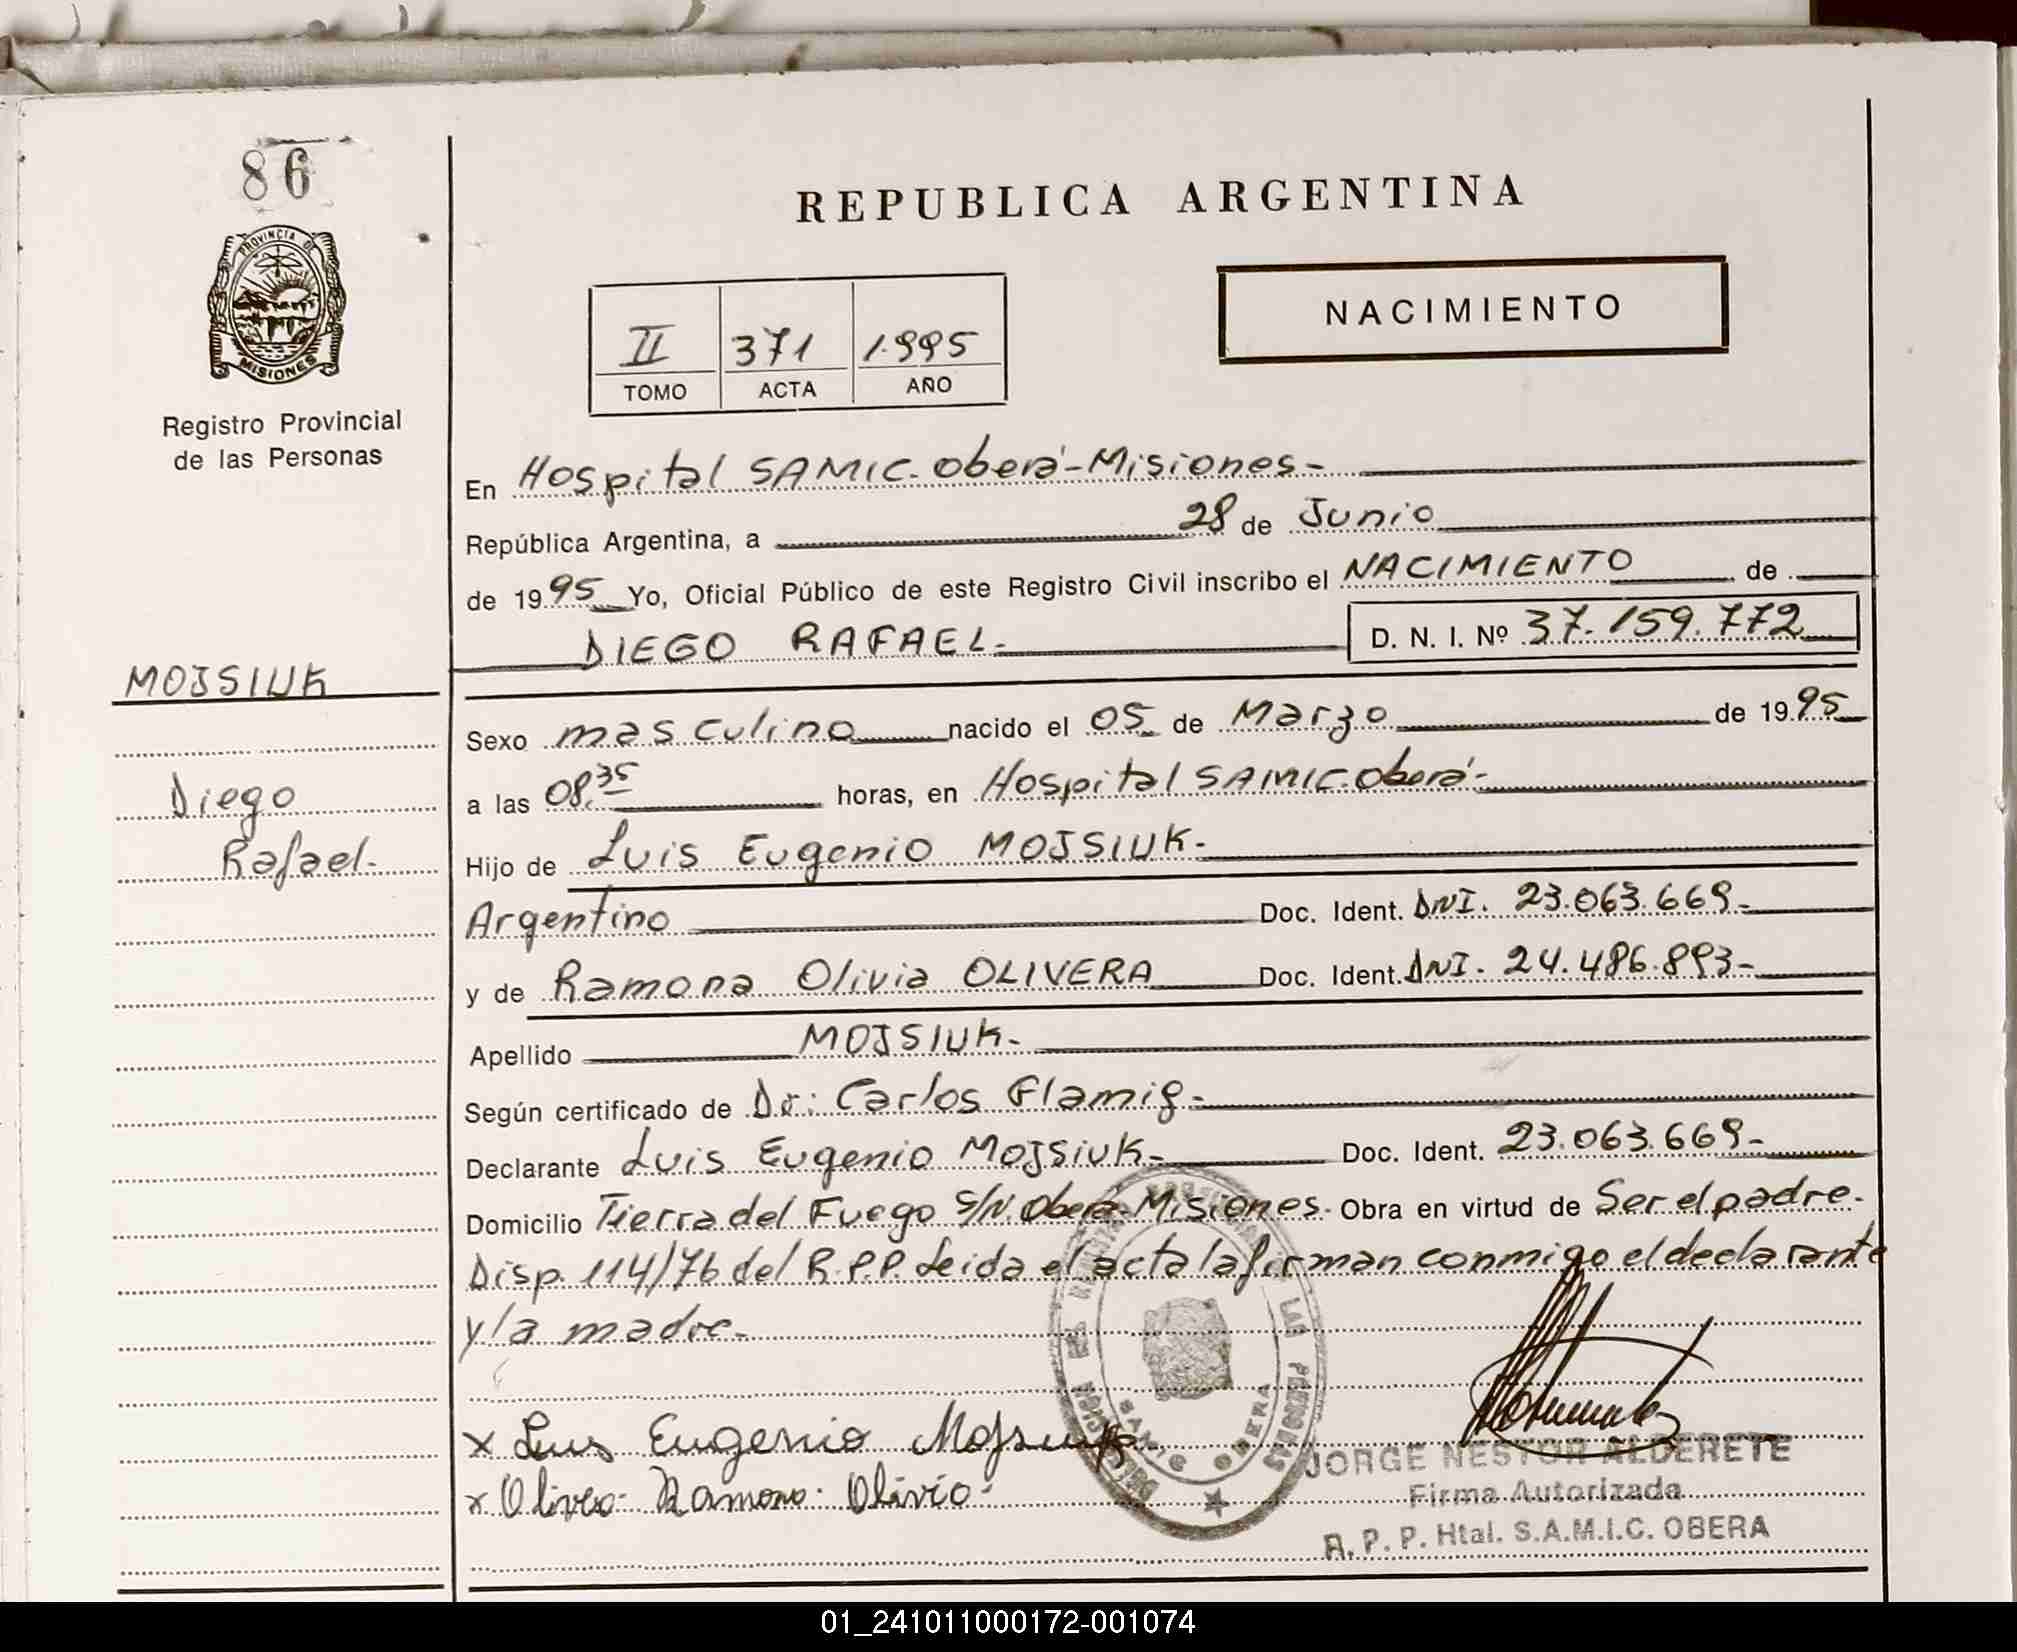 86
PROVINCIA DE
MISIONES
Registro Provincial
de las Personas
MOJSIUK
Diego
Rafael.
REPUBLICA ARGENTINA
II 371 1.995
TOMO ACTA AÑO
NACIMIENTO
En Hospital SAMIC. Oberá-Misiones-
República Argentina, a 28 de Junio
de 1995 Yo, Oficial Público de este Registro Civil inscribo el NACIMIENTO de
DIEGO RAFAEL. D. N. I. Nº 37.159.772
Sexo masculino nacido el 05 de Marzo de 1995
a las 08.35 horas, en Hospital SAMIC. Oberá-
Hijo de Luis Eugenio MOJSIUK-
Argentino Doc. Ident. DNI. 23.063.669-
y de Ramona Olivia OLIVERA Doc. Ident. DNI. 24.486.893-
Apellido MOJSIUK-
Según certificado de Dr: Carlos Glamig-
Declarante Luis Eugenio MOJSIUK- Doc. Ident. 23.063.669-
Domicilio Tierra del Fuego S/N. Oberá-Misiones- Obra en virtud de Ser el padre.
Disp. 114/76 del R.P.P. Leida el acta la firman conmigo el declarante
y la madre-
x Luis Eugenio Mojsiuk
x Olivera Ramona Olivia
LAS PERSONAS
SAMIC OBERA
JORGE NESTOR ALDERETE
Firma Autorizada
R. P. P. Htal. S.A.M.I.C. OBERA
01_241011000172-001074